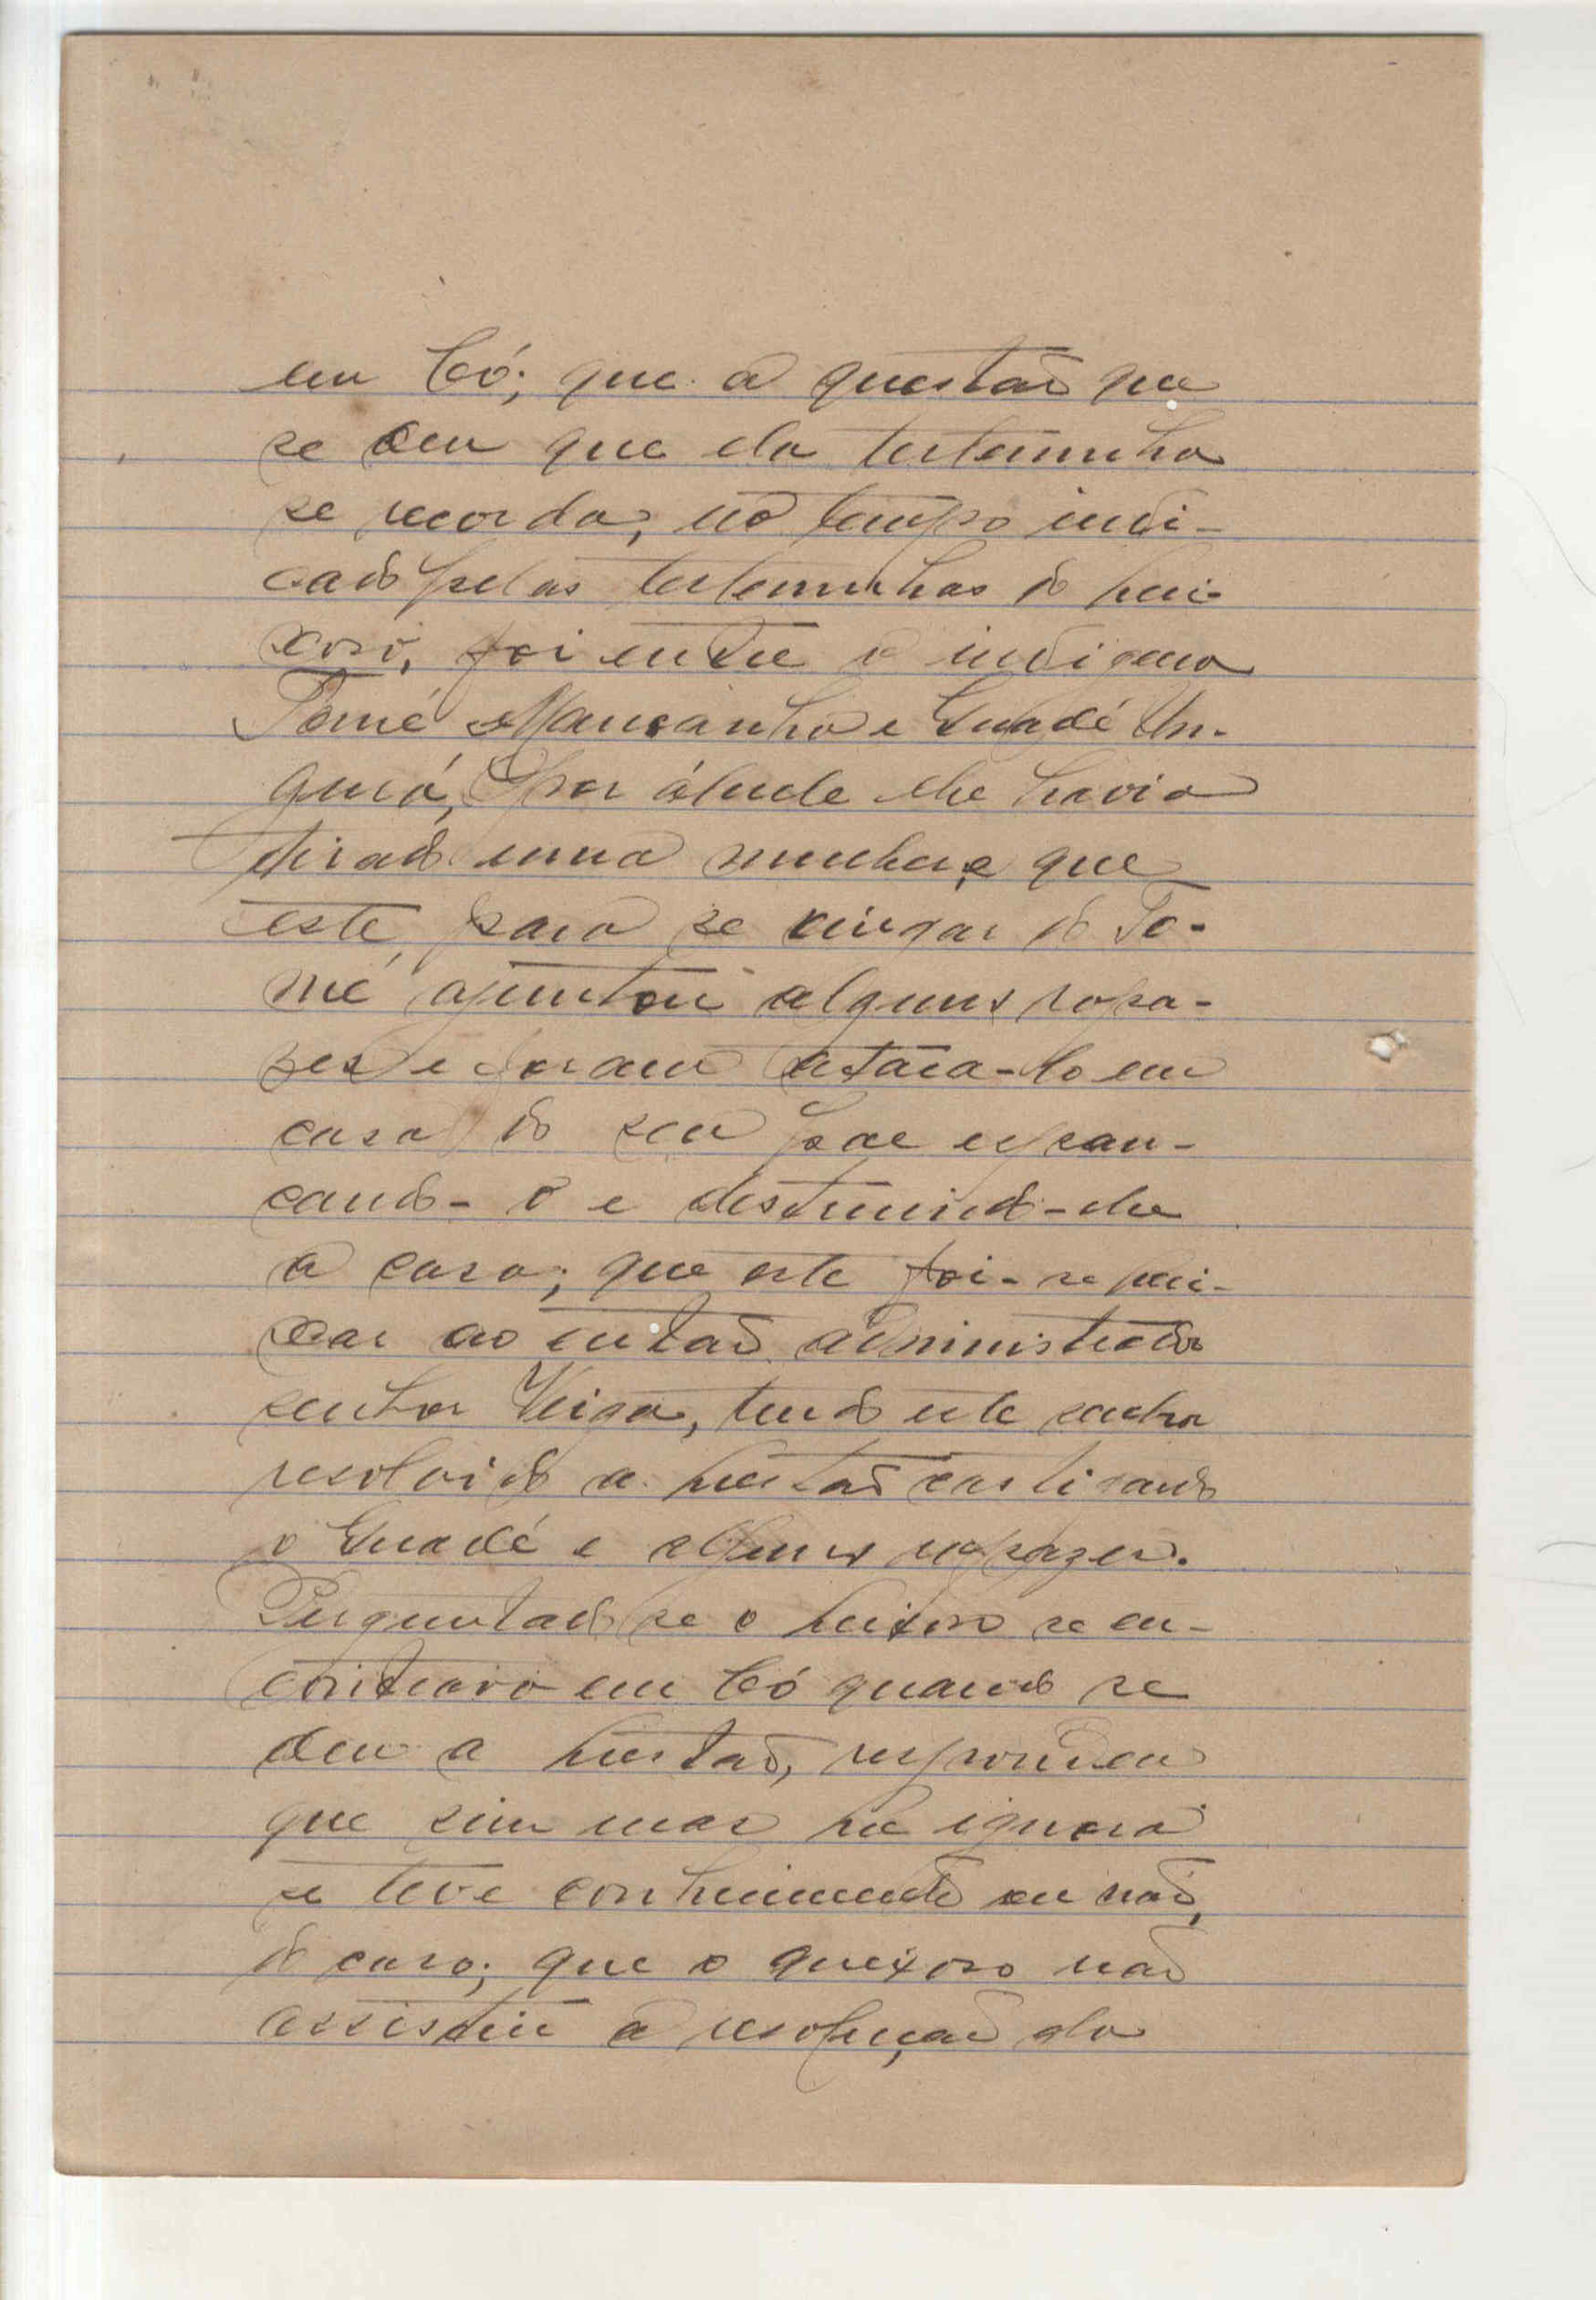 em Có; que a questão que
se deu que ela testemunha
se recorda, no tempo indi-
cado pelas testemunhas do quei-
xoso, foi entre o indigena
Tomé Mansanho e Guadé Un-
guiá, por áquele lhe havia
tirado uma mulher, e que
este, para se vingar do To-
mé ajuntou alguns rapa-
zes e foram ataca-lo em
casa do seu pae espan-
cando-o e destruindo-lhe
a casa; que este foi-se quei-
xar ao então administrador
senhor Veiga, tendo este senhor
resolvido a questão castigando
o Guadé e alguns rapazes.
Perguntado se o queixoso se en-
contrava em Có quando se
deu a questão, respondeu
que sim mas que ignora
se teve conhecimento ou não,
do caso; que o queixoso não
assistiu a resolução da